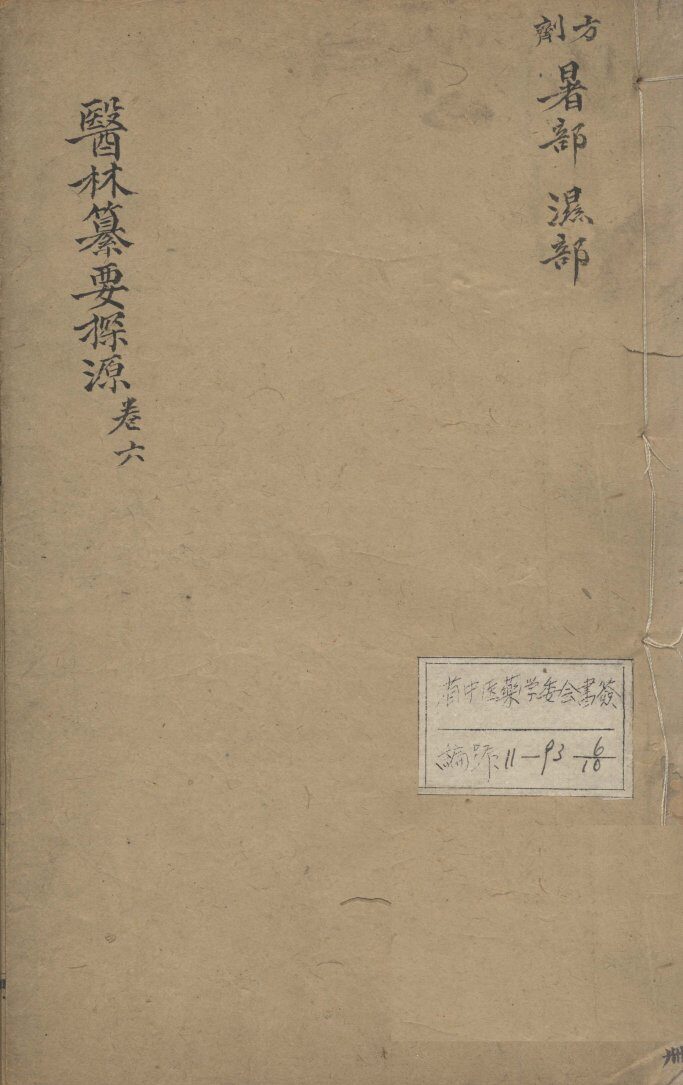 方劑
暑部 濕部
醫林纂要探源 卷六
省中医藥学委会書簽
編號 11-93 6/10